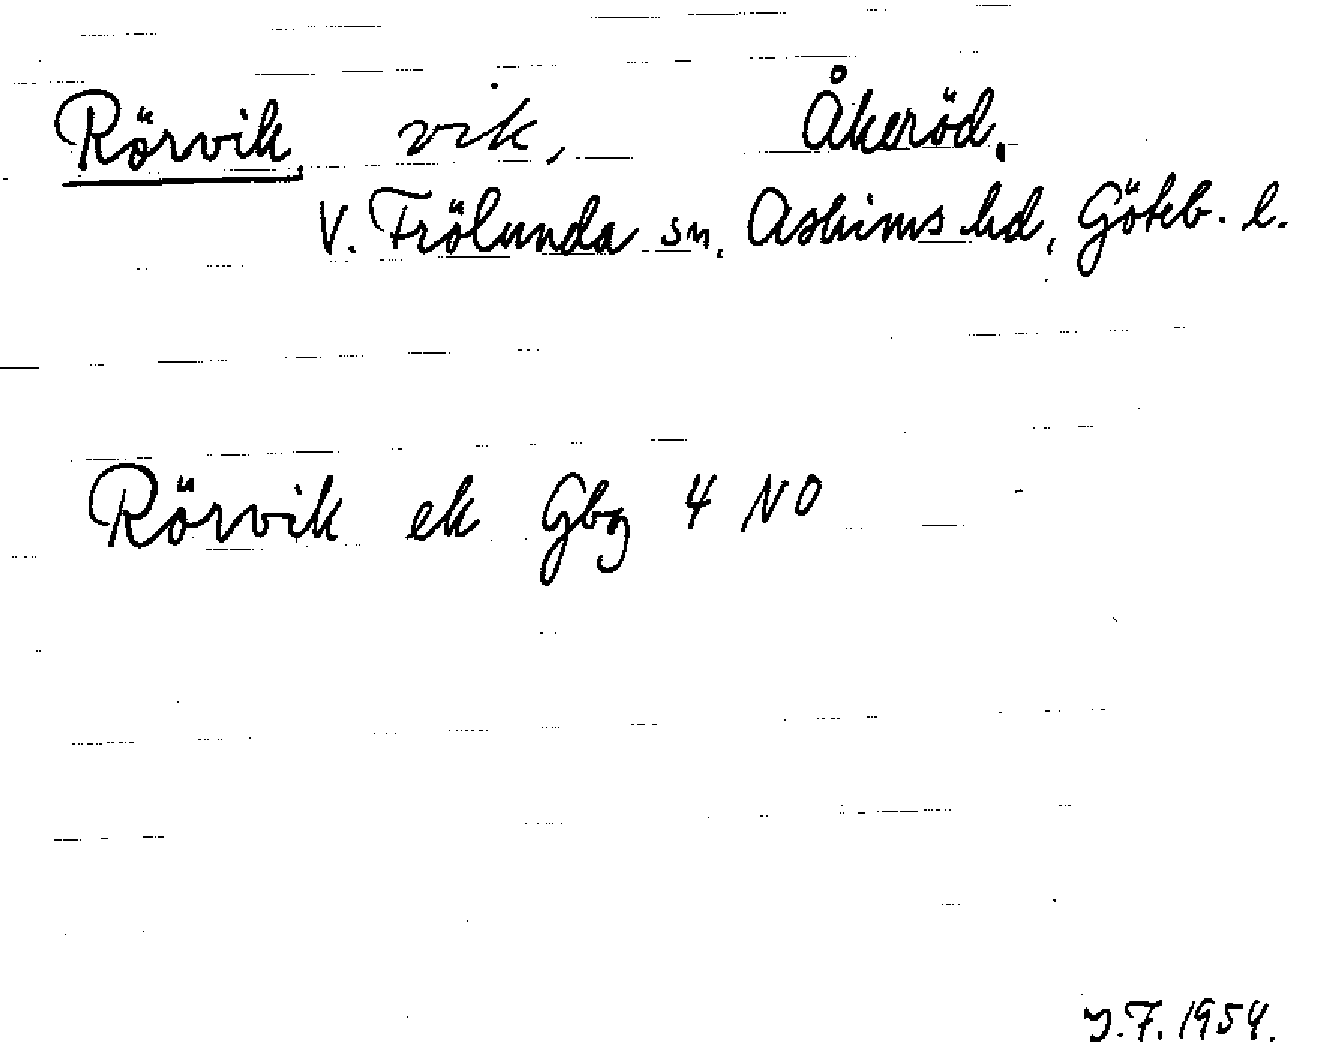 Rörvik, vik, Åkeröd,
V. Frölunda sn, Askims hd, Göteb. l.
Rörvik ek Gbg 4 NO
J.F. 1954.